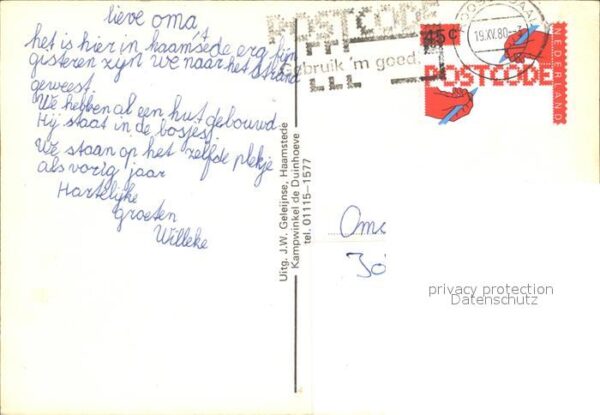 lieve oma
het is hier in haamstede erg fijn
gisteren zijn we naar het strand
geweest.
We hebben al een hut gebouwd
Hij staat in de bosjes!
We staan op het zelfde plekje
als vorig jaar
Hartelijke
groeten
Willeke
Uitg. J.W. Geleijnse, Haamstede
Kampwinkel de Duinhoeve
tel. 01115-1577
POSTCODE
Gebruik 'm goed.
19.XV.80
45c
POSTCODE
NEDERLAND
Oma
privacy protection
Datenschutz